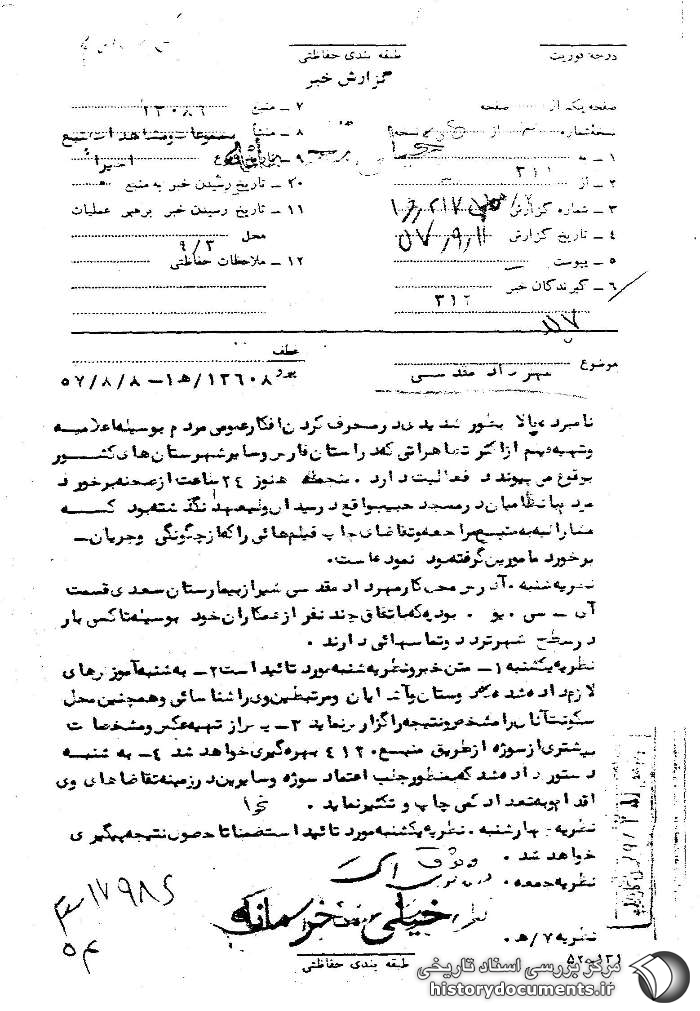 درجه فوریت
طبقه بندی حفاظتی
گزارش خبر
صفحه یک از صفحه
نسخه شماره از نسخه
۱ ــ به
۲ ــ از ۳۱۱
۳ ــ شماره گزارش
۴ ــ تاریخ گزارش ۵۷٫۹٫۱۱
۵ ــ پیوست
۶ ــ گیرندگان خبر
۳۱۲
۷ ــ منبع ۱۳۰۸۶
۸ ــ منشأ مسموعات و مشاهدات منبع
۹ ــ تاریخ وقوع اخیراً
۱۰ ــ تاریخ رسیدن خبر به منبع
۱۱ ــ تاریخ رسیدن خبر برهبر عملیات
محل ۹/۳
۱۲ ــ ملاحظات حفاظتی
موضوع مهرداد مقدسی
عطف
پیرو ۱۲۶۰۸/ه۱ــ ۵۷/۸/۸
نامبرده بالا بطور شدیدی در منحرف کردن افکار عمومی مردم بوسیله اعلامیه
و تهیه فیلم از اکثر تظاهراتی که در استان فارس و سایر شهرستان های کشور
بوقوع می پیوندد فعالیت دارد. هنوز ۲۴ ساعت از صحنه برخورد
مردم با نظامیان در مسجد حبیب واقع در میدان ولیعهد نگذشته بود که
مشارالیه به منبع مراجعه و تقاضای چاپ فیلم هائی را که از چگونگی و جریان ــ
برخورد مامورین گرفته بود نموده است.
نظریه شنبه. آدرس محل کار مهرداد مقدسی شیراز بیمارستان سعدی قسمت
آی ــ سی. یو. بوده که باتفاق چند نفر از همکاران خود بوسیله تاکسی بار
در سطح شهر تردد و تماسهائی دارند.
نظریه یکشنبه ۱ــ متن خبر و نظریه شنبه مورد تائید است ۲ــ به شنبه آموزش های
لازم داده شده که دوستان و آشنایان و مرتبطین وی را شناسائی و همچنین محل
سکونت آنان را مشخص و نتیجه را گزارش نماید ۳ــ پس از تهیه عکس و مشخصات
بیشتری از سوژه از طریق منبع ۴۱۲ بهره گیری خواهد شد ۴ــ به شنبه
دستور داده شد که بمنظور جلب اعتماد سوژه و سایرین در زمینه تقاضاهای وی
اقدام و به تعداد کمی چاپ و تکثیر نماید.
نظریه چهارشنبه. نظریه یکشنبه مورد تائید است ضمناً تا حصول نتیجه پیگیری
خواهد شد.
نظریه جمعه.
خیلی محرمانه
نظریه ۷/ه.
طبقه بندی حفاظتی
مرکز بررسی اسناد تاریخی
historydocuments.ir